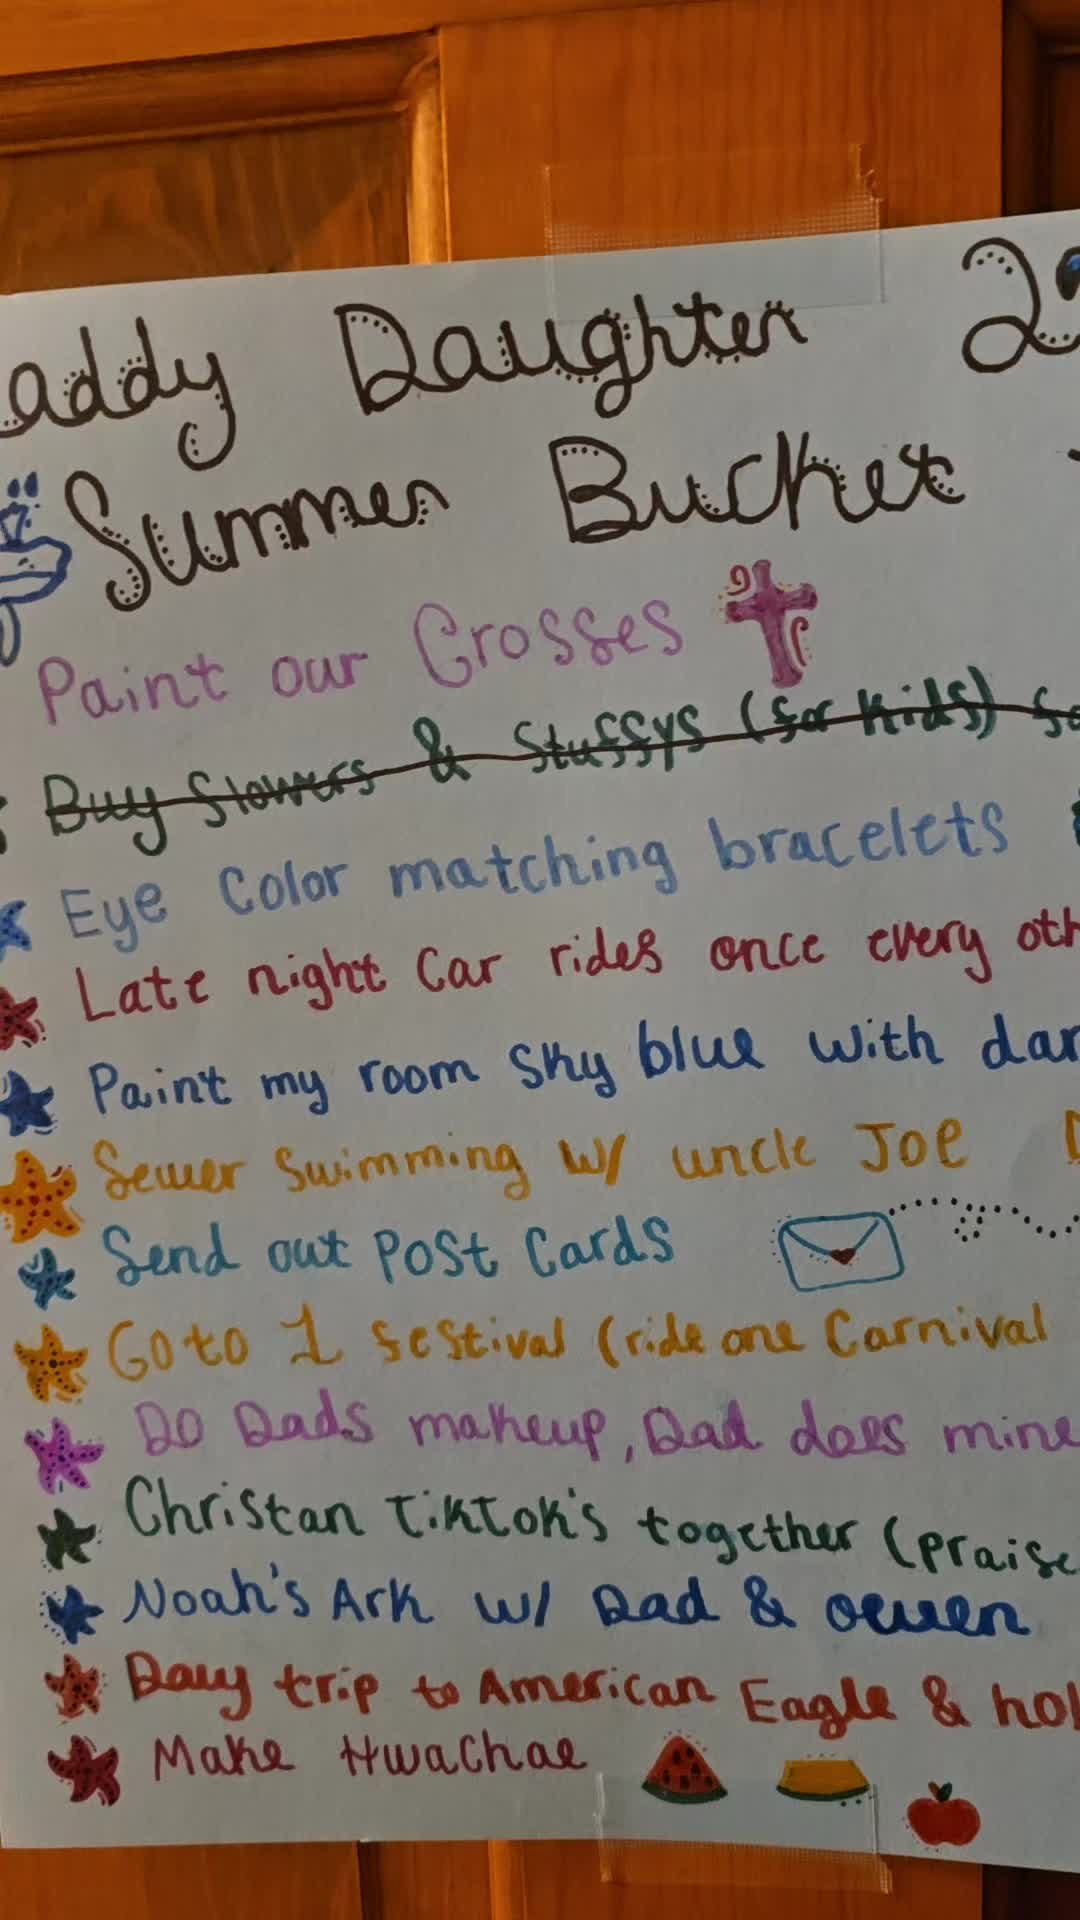 addy Daughter 2
Summer Bucket
Paint our Crosses
Buy flowers & Stuffys (for kids) fo
Eye Color matching bracelets
Late night Car rides once every oth
Paint my room Sky blue with dar
Sewer Swimming w/ uncle Joe D
Send out Post Cards
Go to 1 festival (ride one Carnival
Do Dads makeup, Dad does mine
Christan TikTok's together (praise
Noah's Ark w/ Dad & owen
Day trip to American Eagle & hol
Make Hwachae